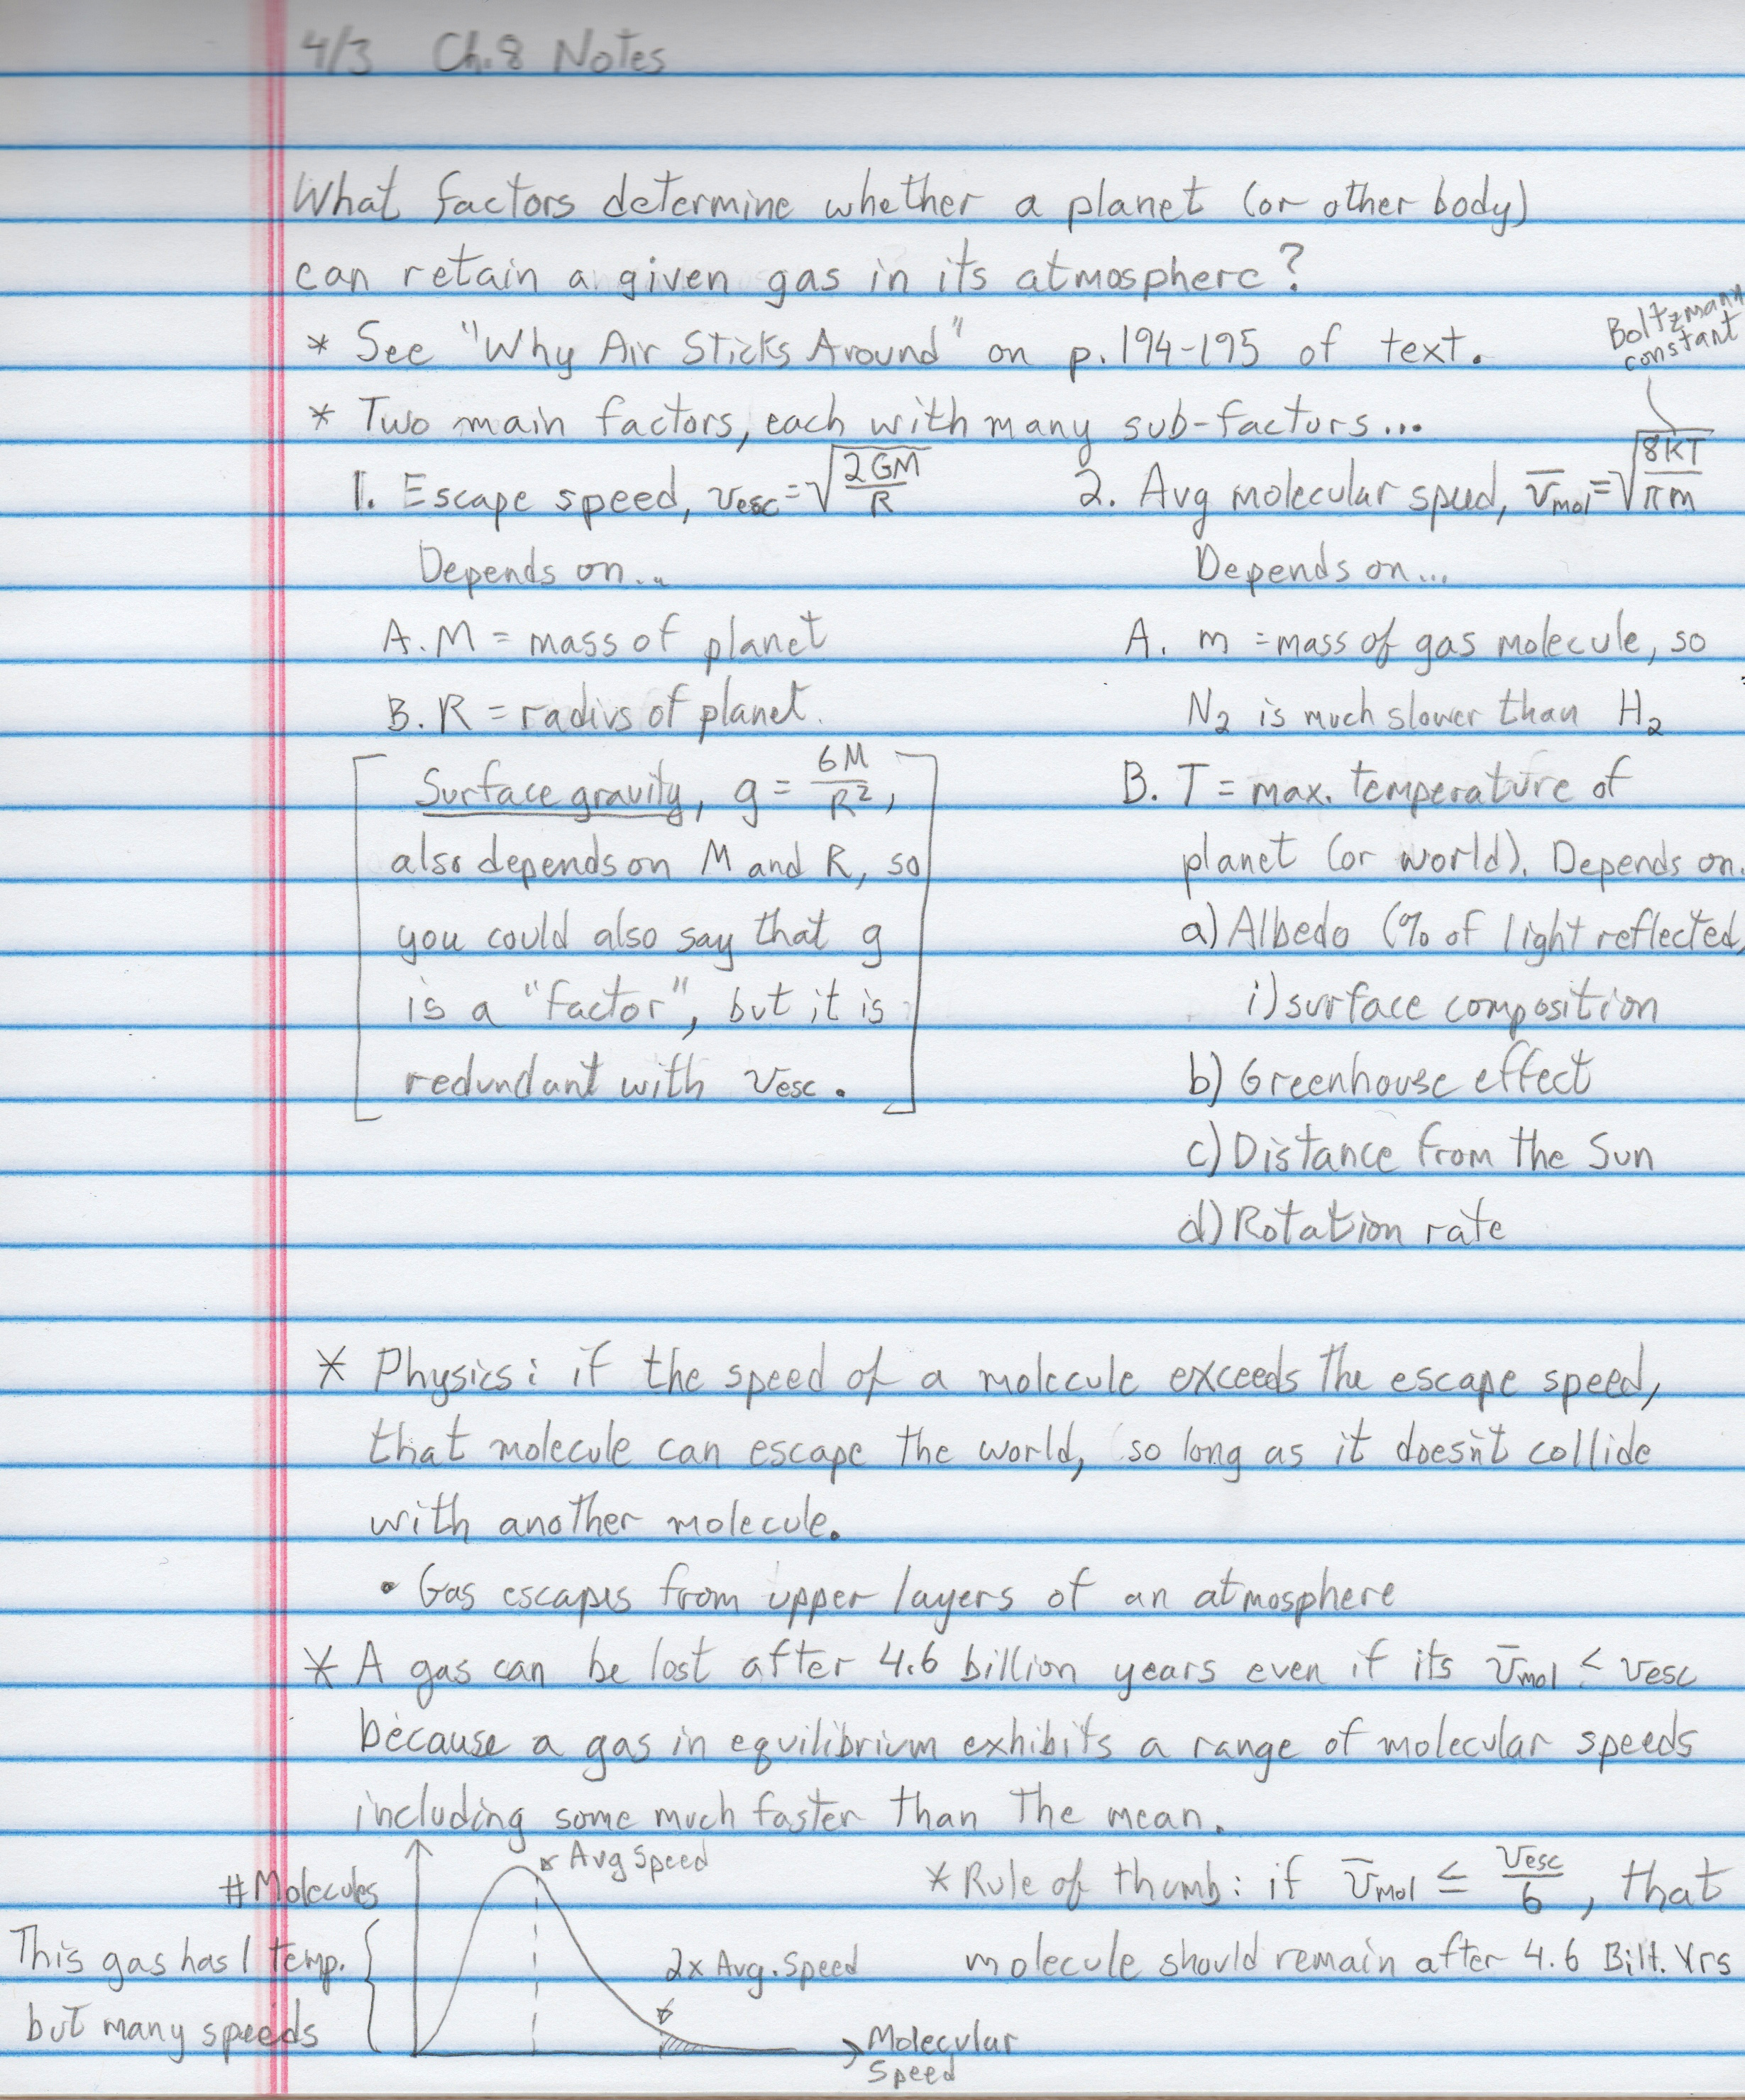 4/3 Ch.8 Notes
What factors determine whether a planet (or other body)
can retain a given gas in its atmosphere?
* See "Why Air Sticks Around" on p. 194-195 of text.
Boltzmann
constant
* Two main factors, each with many sub-factors...
1. Escape speed, vesc = √(2GM/R)
Depends on...
A. M = mass of planet
B. R = radius of planet.
[Surface gravity, g = GM/R²,
also depends on M and R, so
you could also say that g
is a "factor", but it is
redundant with vesc.]
2. Avg molecular speed, v̄mol = √(8kT/πm)
Depends on...
A. m = mass of gas molecule, so
N₂ is much slower than H₂
B. T = max. temperature of
planet (or world). Depends on.
a) Albedo (% of light reflected)
i) surface composition
b) Greenhouse effect
c) Distance from the Sun
d) Rotation rate
* Physics: if the speed of a molecule exceeds the escape speed,
that molecule can escape the world, so long as it doesn't collide
with another molecule.
• Gas escapes from upper layers of an atmosphere
* A gas can be lost after 4.6 billion years even if its v̄mol < vesc
because a gas in equilibrium exhibits a range of molecular speeds
including some much faster than the mean.
# Molecules
Avg Speed
This gas has 1 temp.
but many speeds
2x Avg. Speed
Molecular
Speed
* Rule of thumb: if v̄mol ≤ vesc/6, that
molecule should remain after 4.6 Bill. Yrs